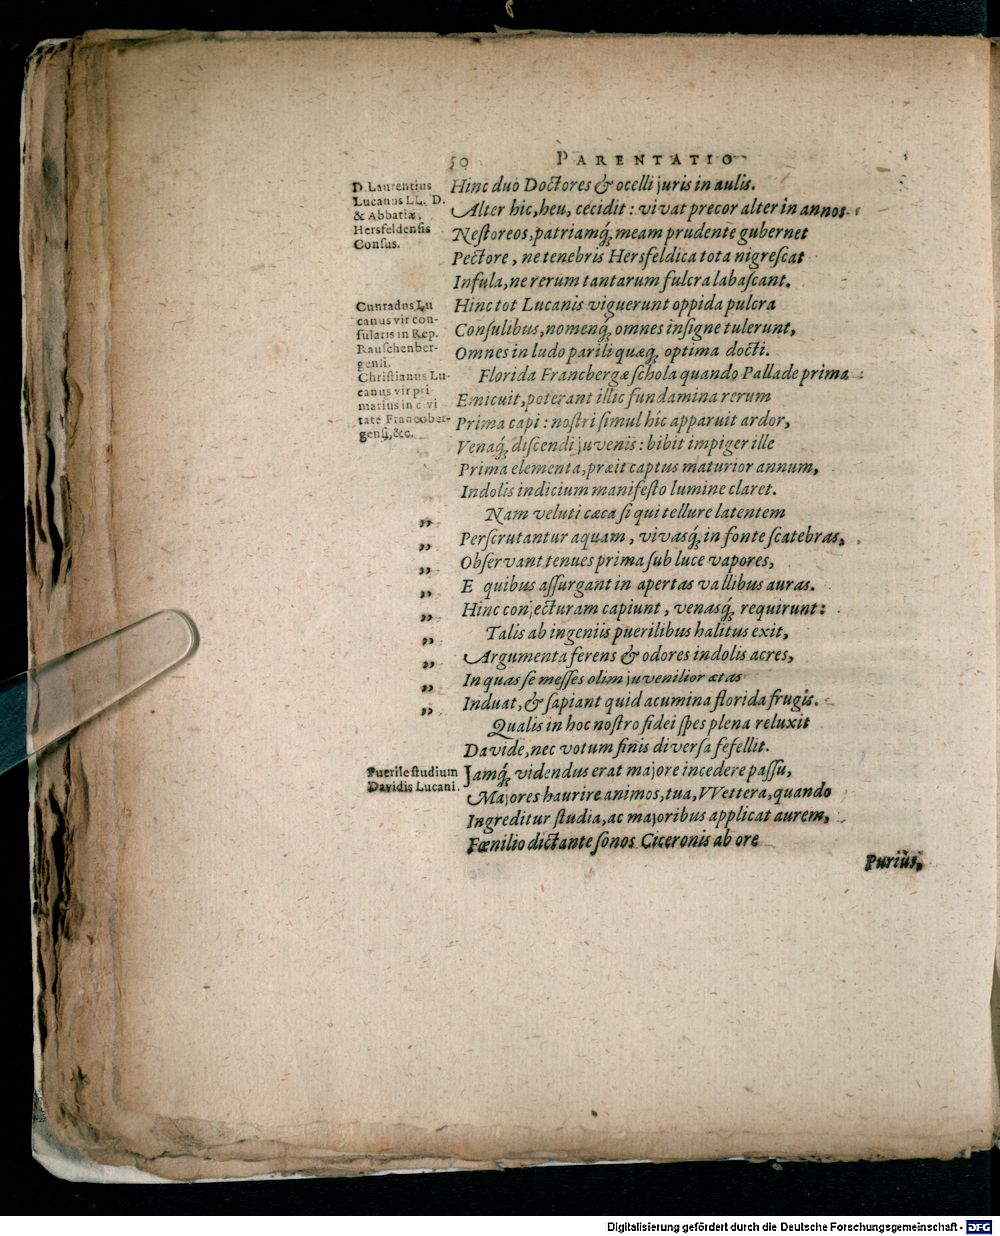 50 PARENTATIO
D. Laurentius
Lucanus LL. D.
& Abbatiæ,
Hersfeldensis
Consus.
Hinc duo Doctores & ocelli juris in aulis.
Alter hic, heu, cecidit: vivat precor alter in annos
Nestoreos, patriamq́; meam prudente gubernet
Pectore, ne tenebris Hersfeldica tota nigrescat
Insula, ne rerum tantarum fulcra labascant.
Cunradus Lu
canus vir con-
sularis in Rep.
Rauschenber-
gensi.
Christianus Lu-
canus vir pri
marius in civi
tate Francober-
gensi, &c.
Hinc tot Lucanis viguerunt oppida pulcra
Consulibus, nomenq́; omnes insigne tulerunt,
Omnes in ludo parili quæq; optima docti.
Florida Francbergæ schola quando Pallade prima
Emicuit, poterant illic fundamina rerum
Prima capi: nostri simul hîc apparuit ardor,
Venaq́; discendi juvenis: bibit impiger ille
Prima elementa, præit captus maturior annum,
Indolis indicium manifesto lumine claret.
Nam veluti cæca si qui tellure latentem
„ Perscrutantur aquam, vivasq́; in fonte scatebras,
„ Observant tenues prima sub luce vapores,
„ E quibus assurgant in apertas vallibus auras.
„ Hinc conjecturam capiunt, venasq́; requirunt:
„ Talis ab ingeniis puerilibus halitus exit,
„ Argumenta ferens & odores indolis acres,
„ In quas se messes olim juvenilior ætas
„ Induat, & sapiant quid acumina florida frugis.
„ Qualis in hoc nostro fidei spes plena reluxit
Davide, nec votum finis diversa fefellit.
Puerile studium
Davidis Lucani.
Jamq́; videndus erat majore incedere passu,
Majores haurire animos, tua, VVettera, quando
Ingreditur studia, ac majoribus applicat aurem,
Fœnilio dictante sonos Ciceronis ab ore
Puriùs,
Digitalisierung gefördert durch die Deutsche Forschungsgemeinschaft - DFG